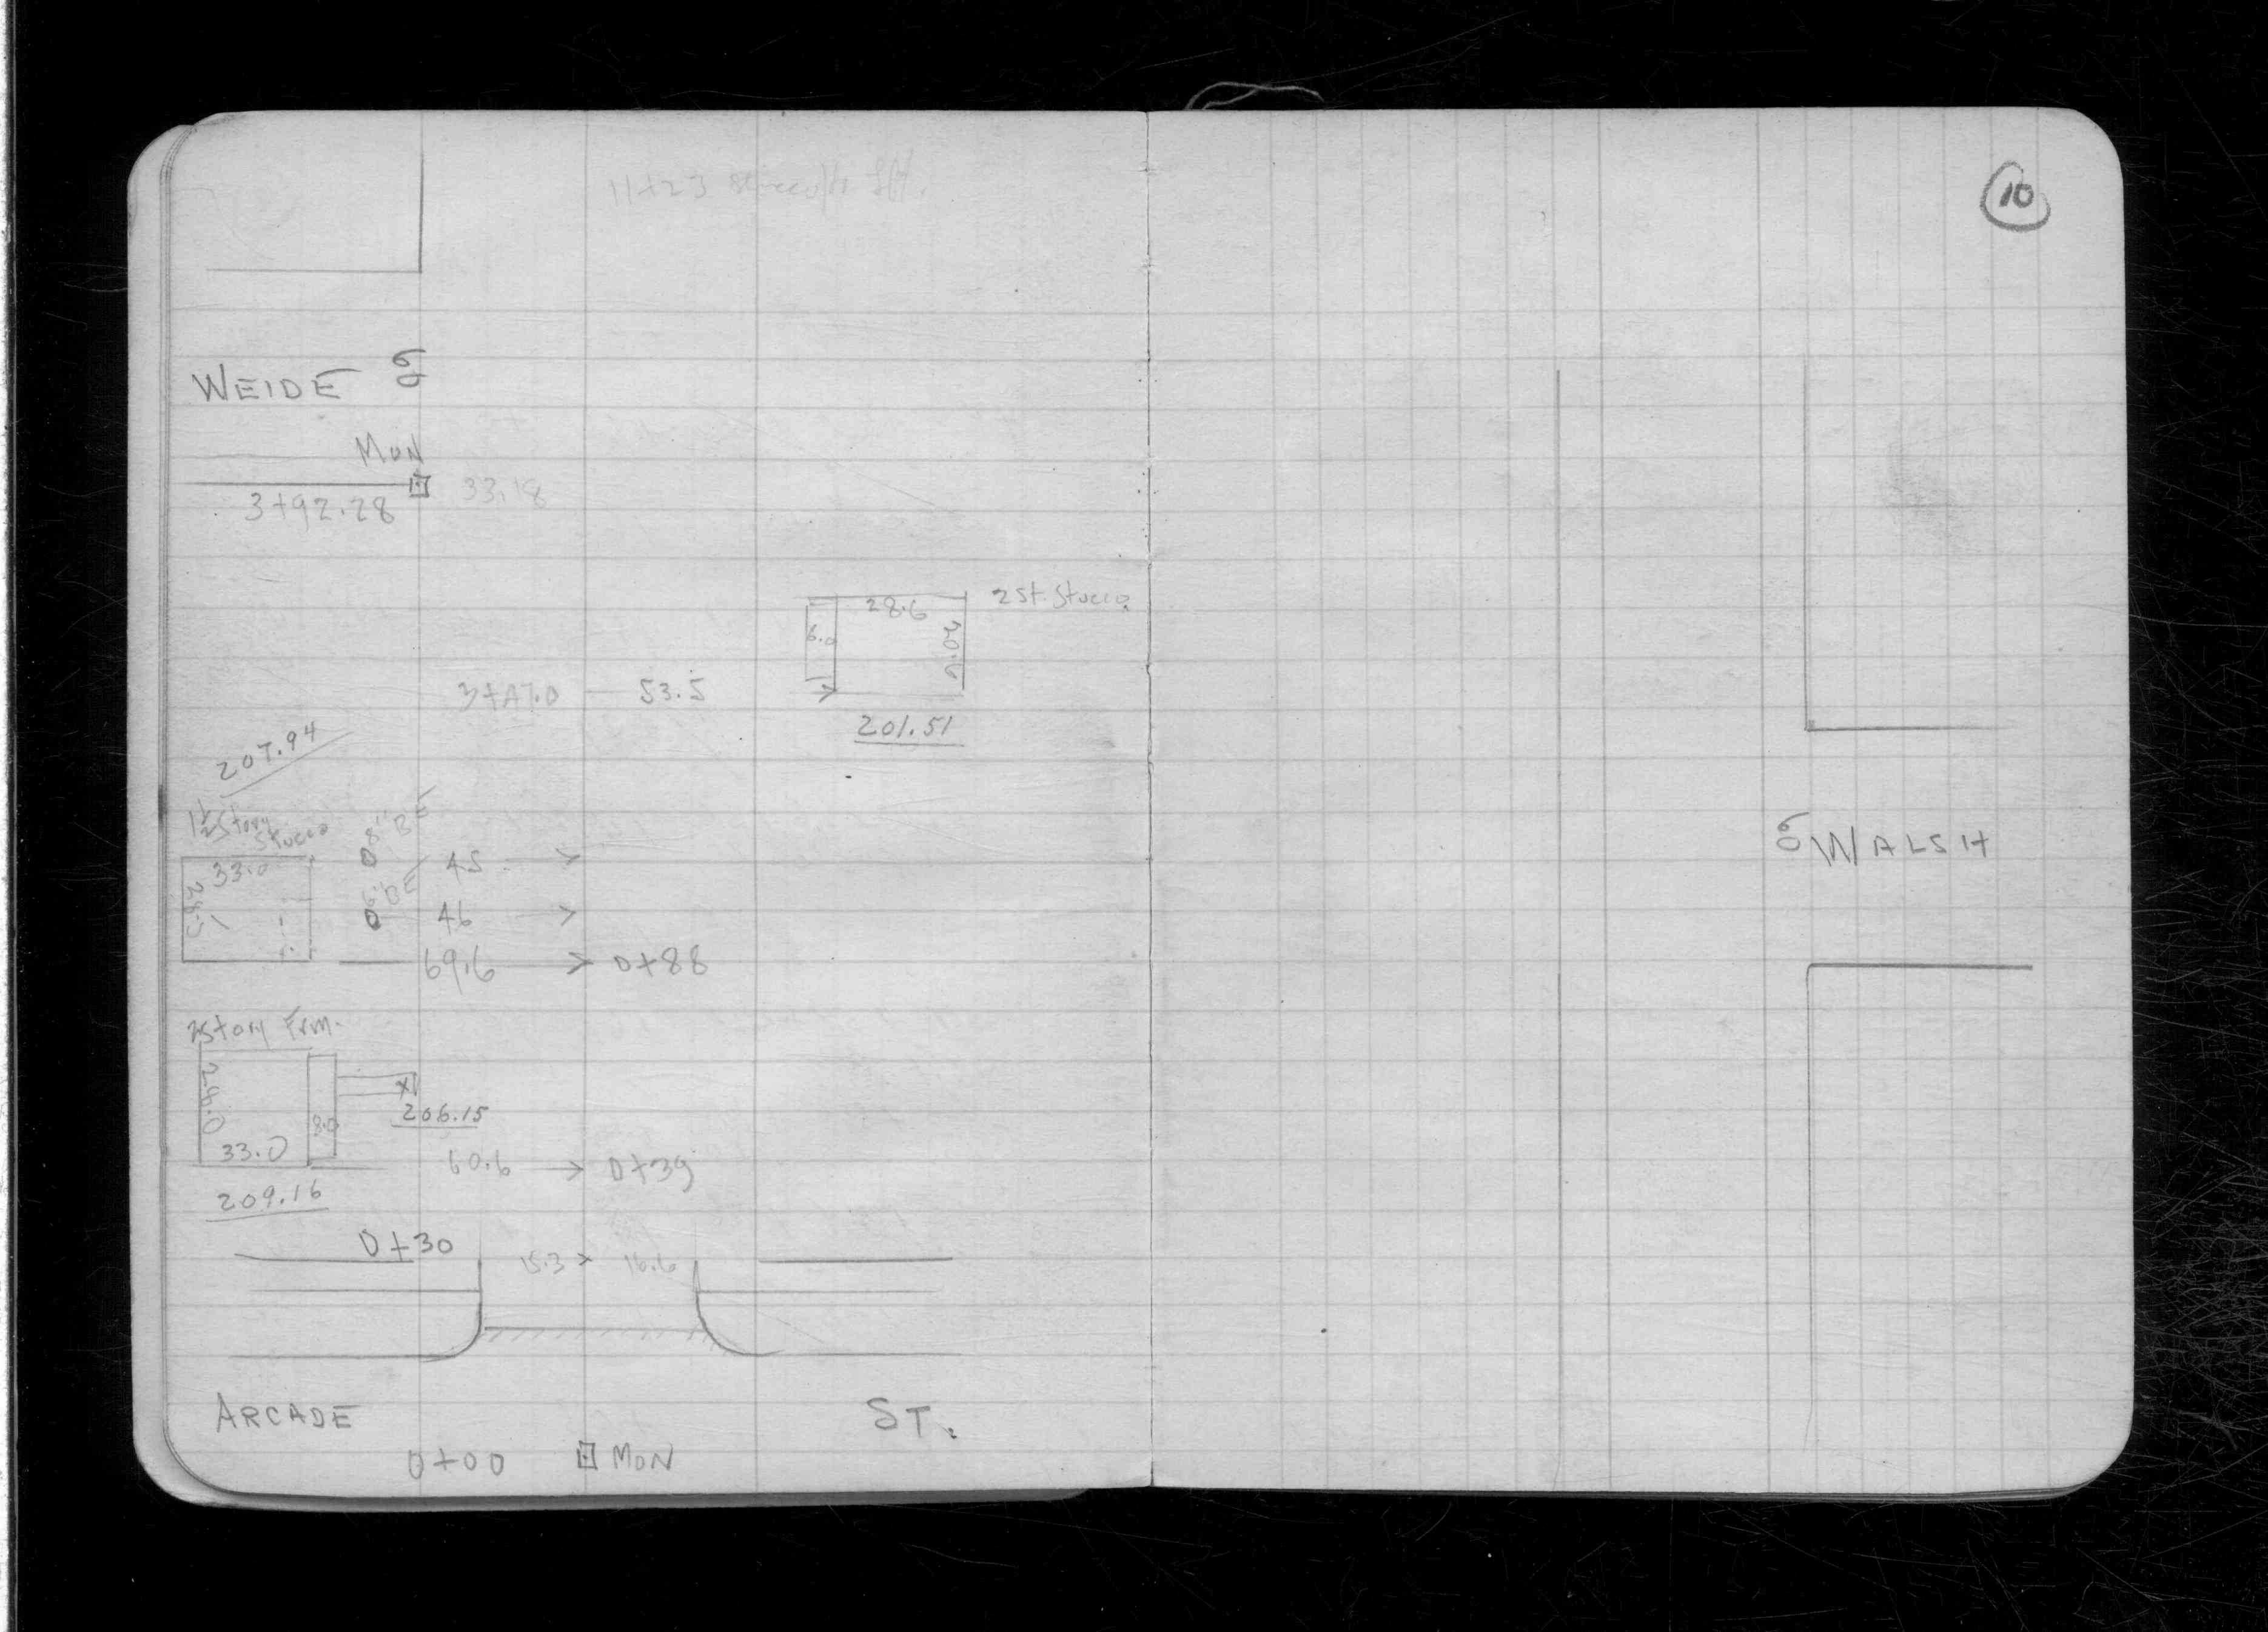 10
11+23
WEIDE
MON
3+92.28 33.18
28.6 2 St. Stucco
6.0 20.5
3+47.0 53.5
201.51
207.94
1½ Story
Stucco
8" BE
33.0 45
28.5
6" BE
46
69.6 0+88
WALSH
2 Story Frm.
24.0
8.0
206.15
33.0 60.6 0+39
209.16
0+30 15.3 16.6
ARCADE ST.
0+00 MON